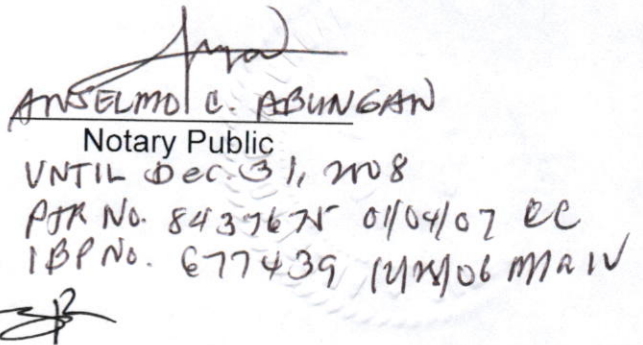 ANSELMO C. ABUNGAN
Notary Public
UNTIL Dec. 31, 2008
PTR No. 01/04/07 QC
IBP No. 677439 MAIN